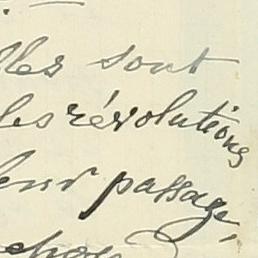 lles sont
les révolutions
leur passage,
chose